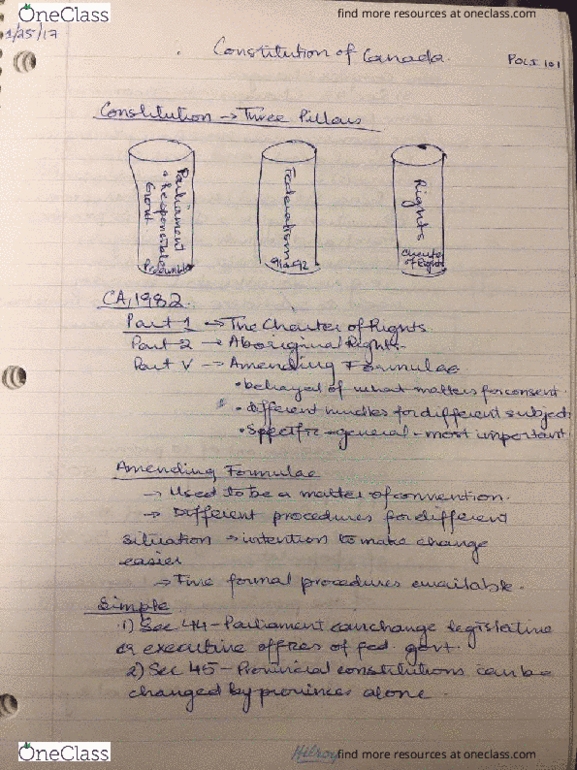 OneClass
find more resources at oneclass.com
1/25/17
Constitution of Canada.
POLS 101
Constitution → Three Pillars
Parliament
& Responsible
Govt
Preamble
Federalism
91 & 92
Rights
Charter
of Rights
CA, 1982
Part 1 → The Charter of Rights
Part 2 → Aboriginal Rights.
Part V → Amending Formulae
• of what matters for consent.
• Different for different subject
• Specific - general - most important
Amending Formulae
→ Used to be a matter of convention.
→ Different procedures for different
situation → intention to make change
easier
→ Five formal procedures available.
Simple
1) Sec 44 - Parliament can change legislative
or executive offices of fed. govt.
2) Sec 45 - Provincial constitutions can be
changed by provinces alone.
OneClass
Hilroy
find more resources at oneclass.com